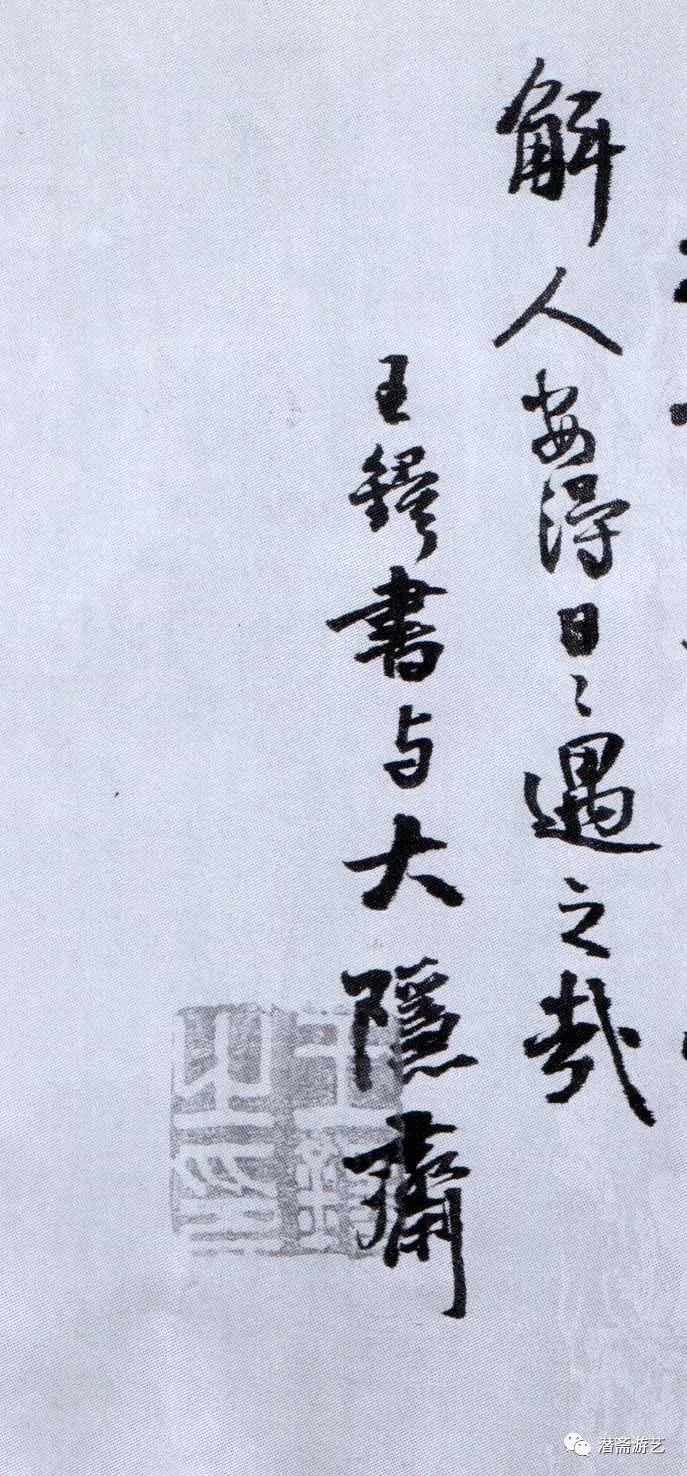 解人安得日〻遇之哉
王鐸書与大隱齋
潜斋游艺